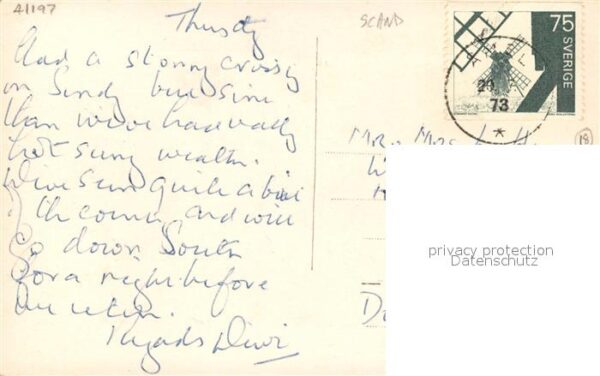 41197
Thursdy
SCAND
Had a stormy crossing
on Sundy but since
then we've had really
hot sunny weather.
We've seen quite a bit
of the country and will
go down South
for a night before
we return.
Regards
75
SVERIGE
29
73
Mr. Mrs
18
privacy protection
Datenschutz